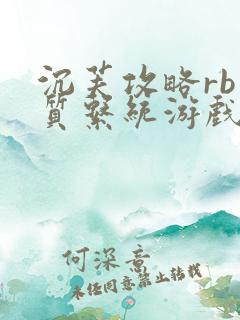 沉芙攻略rb
质繫统游戏
何深意
未经同意禁止转载